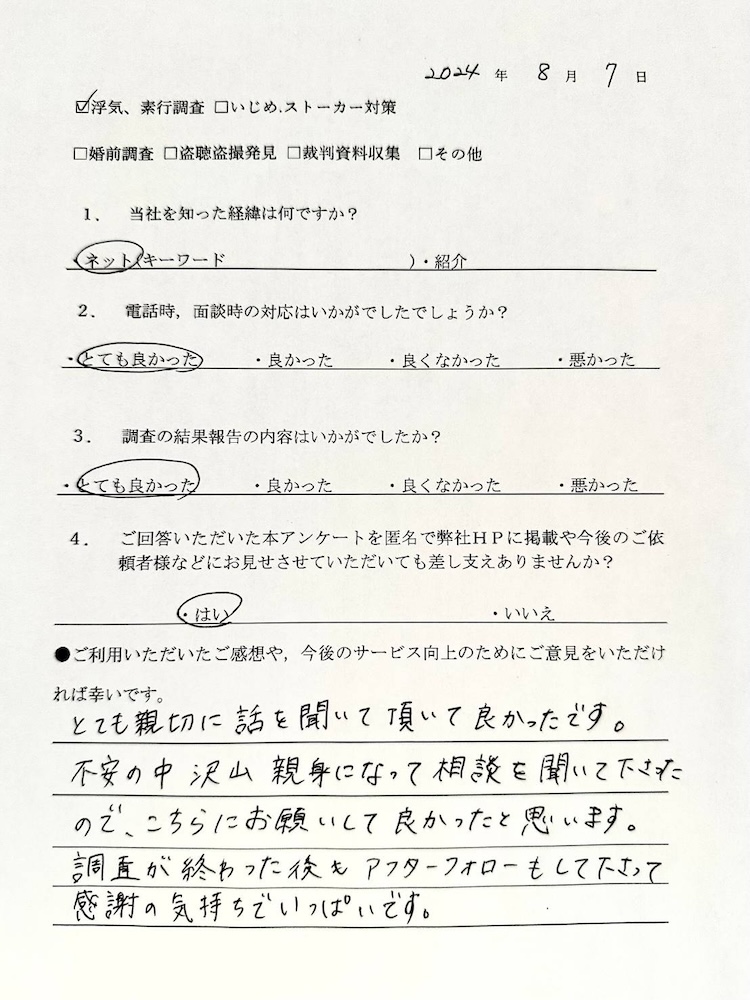 2024 年 8 月 7 日
☑浮気、素行調査 □いじめ.ストーカー対策
□婚前調査 □盗聴盗撮発見 □裁判資料収集 □その他
１． 当社を知った経緯は何ですか？
・ネット(キーワード )・紹介
２． 電話時，面談時の対応はいかがでしたでしょうか？
・とても良かった ・良かった ・良くなかった ・悪かった
３． 調査の結果報告の内容はいかがでしたか？
・とても良かった ・良かった ・良くなかった ・悪かった
４． ご回答いただいた本アンケートを匿名で弊社ＨＰに掲載や今後のご依
頼者様などにお見せさせていただいても差し支えありませんか？
・はい ・いいえ
●ご利用いただいたご感想や，今後のサービス向上のためにご意見をいただけ
れば幸いです。
とても親切に話を聞いて頂いて良かったです。
不安の中 沢山 親身になって相談を聞いて下さった
ので、こちらにお願いして良かったと思います。
調査が終わった後も アフターフォローもして下さって
感謝の気持ちでいっぱいです。